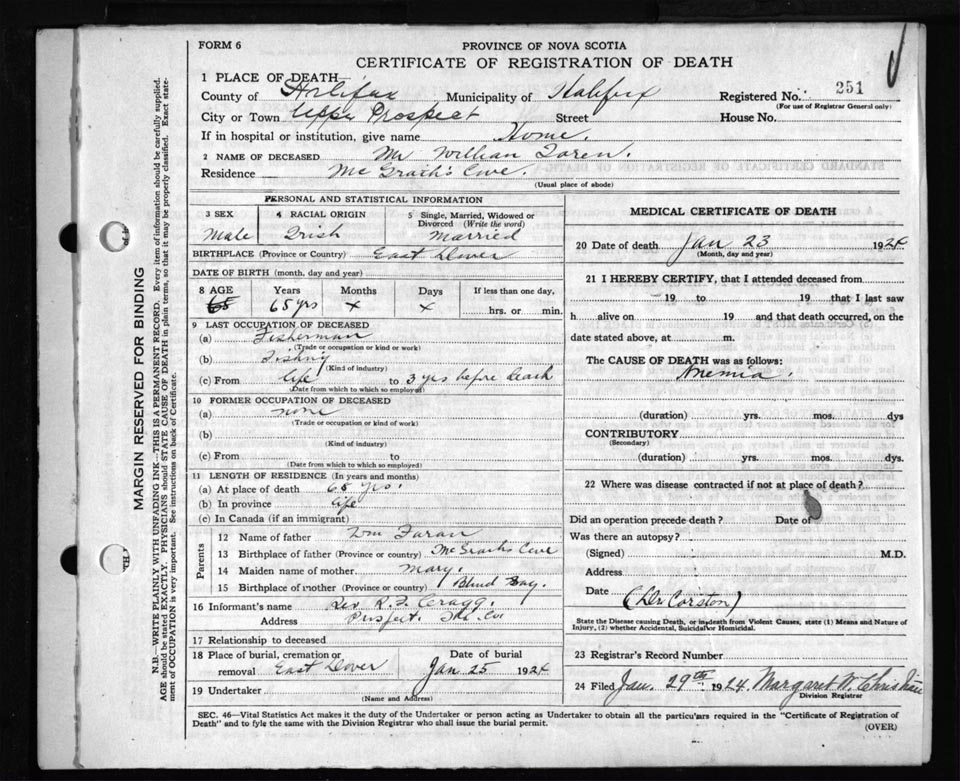 FORM 6
PROVINCE OF NOVA SCOTIA
CERTIFICATE OF REGISTRATION OF DEATH
1 PLACE OF DEATH
County of Halifax Municipality of Halifax Registered No. 251
(For use of Registrar General only)
City or Town Upper Prospect Street House No.
If in hospital or institution, give name Home.
2 NAME OF DECEASED Mr William Foren.
Residence McGrath's Cove.
(Usual place of abode)
PERSONAL AND STATISTICAL INFORMATION
3 SEX Male
4 RACIAL ORIGIN Irish
5 Single, Married, Widowed or Divorced (Write the word) Married
BIRTHPLACE (Province or Country) East Dover
DATE OF BIRTH (month, day and year)
8 AGE Years Months Days If less than one day,
65 65 yrs x x hrs. or min.
9 LAST OCCUPATION OF DECEASED
(a) Fisherman
(Trade or occupation or kind or work)
(b) Fishing
(Kind of industry)
(c) From life to 3 yrs before Death
(Date from which to which so employed)
10 FORMER OCCUPATION OF DECEASED
(a) none
(Trade or occupation or kind of work)
(b)
(Kind of industry)
(c) From to
(Date from which to which so employed)
11 LENGTH OF RESIDENCE (In years and months)
(a) At place of death 65 yrs.
(b) In province life
(c) In Canada (if an immigrant)
Parents
12 Name of father Wm Foran
13 Birthplace of father (Province or country) McGrath's Cove
14 Maiden name of mother Mary.
15 Birthplace of mother (Province or country) Blind Bay.
16 Informant's name Rev. Cragg.
Address Prospect.
17 Relationship to deceased
18 Place of burial, cremation or removal East Dover Date of burial Jan 25 1924
19 Undertaker
(Name and Address)
MEDICAL CERTIFICATE OF DEATH
20 Date of death Jan 23 1924
(Month, day and year)
21 I HEREBY CERTIFY, that I attended deceased from
19 to 19 that I last saw
h alive on 19 and that death occurred, on the
date stated above, at m.
The CAUSE OF DEATH was as follows:
Anemia.
(duration) yrs. mos. dys
CONTRIBUTORY
(Secondary)
(duration) yrs. mos. dys.
22 Where was disease contracted if not at place of death?
Did an operation precede death? Date of
Was there an autopsy?
(Signed) M.D.
Address
Date
(Dr Corston)
State the Disease causing Death, or in death from Violent Causes, state (1) Means and Nature of Injury, (2) whether Accidental, Suicidal or Homicidal.
23 Registrar's Record Number
24 Filed Jan. 29th 1924 Margaret W. Christian
Division Registrar
SEC. 46—Vital Statistics Act makes it the duty of the Undertaker or person acting as Undertaker to obtain all the particulars required in the "Certificate of Registration of
Death" and to fyle the same with the Division Registrar who shall issue the burial permit.
(OVER)
MARGIN RESERVED FOR BINDING
N.B.—WRITE PLAINLY WITH UNFADING INK—THIS IS A PERMANENT RECORD. Every item of information should be carefully supplied.
AGE should be stated EXACTLY. PHYSICIANS should STATE CAUSE OF DEATH in plain terms, so that it may be properly classified. Exact state-
ment of OCCUPATION is very important. See instructions on back of Certificate.